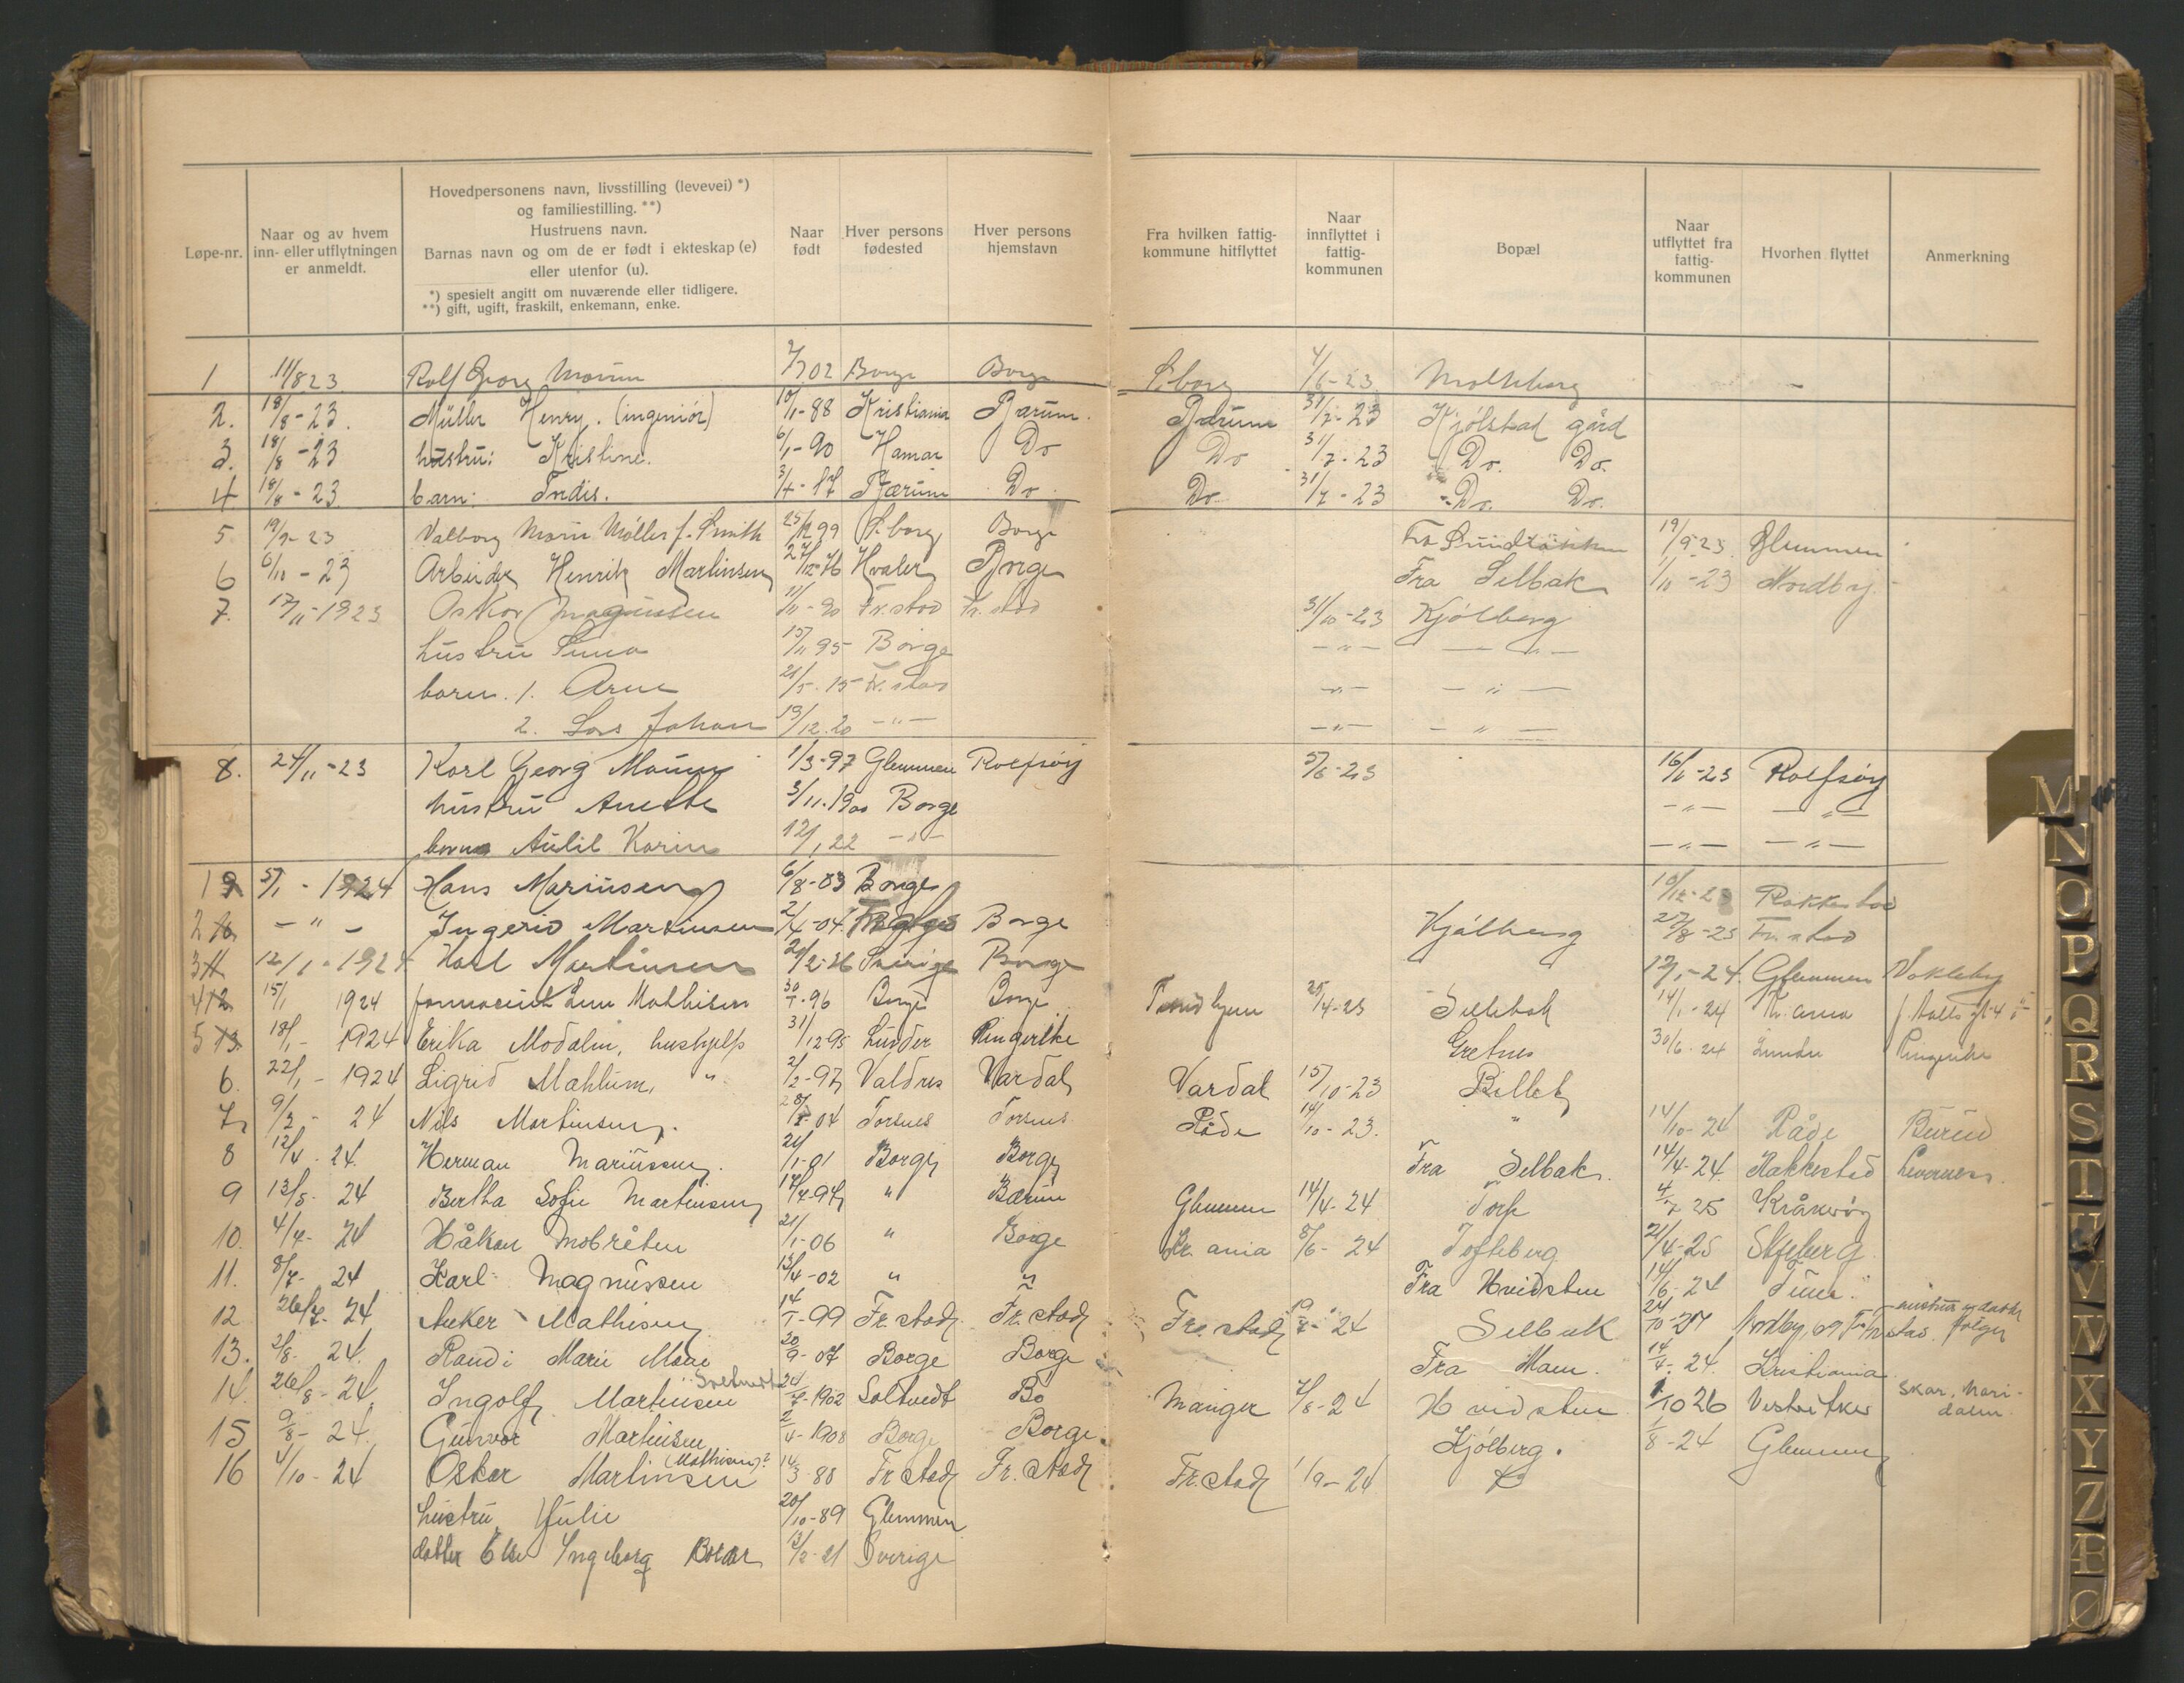 Løpe-nr.
Naar og av hvem
inn- eller utflytningen
er anmeldt.
Hovedpersonens navn, livsstilling (levevei) *)
og familiestilling. **)
Hustruens navn.
Barnas navn og om de er født i ekteskap (e)
eller utenfor (u).
*) spesielt angitt om nuværende eller tidligere.
**) gift, ugift, fraskilt, enkemann, enke.
Naar
født
Hver persons
fødested
Hver persons
hjemstavn
Fra hvilken fattig-
kommune hitflyttet
Naar
innflyttet i
fattig-
kommunen
Bopæl
Naar
utflyttet fra
fattig-
kommunen
Hvorhen flyttet
Anmerkning
1 11/8 23 Rolf Georg 02 Borge Borge S.borg 4/6-23
2. 18/8-23. Müller Henry. (ingeniör) 10/1-88 Kristiania Bærum. Bærum 31/7-23 Kjölstad gård
3. 18/8-23 hustru: Kristine. 6/1-90 Hamar Do Do 31/7-23 Do. Do.
4 18/8-23 barn: Tordis. Bærum Do. Do. 31/7-23 Do. Do.
5 19/9-23 Valborg Marie Møller f. Smith 25/12 99 S.borg Borge Fra 19/9-23 Glemmen
6 6/10-23 Arbeider Henrik Martinsen 27/12-76 Hvaler Borge Fra Selbak 1/10-23 Nordby
7. 17/11-1923 Oskar Magnussen 11/11-90 Fr.stad Fr.stad 31/10-23 Kjölberg
hustru 15/11 95 Borge -"- -"-
barn. 1. Arne 21/5.15 Fr.stad -"- -"-
2. Lars Johan 19/12.20 -"- -"- -"-
8. 24/11-23 Karl Georg 1/3-97 Glemmen Rolfsöy 5/6-23 16/11-23 Rolfsöy
hustru Anette 3/11.1900 Borge -"- -"-
barn Karin 12/1 22 -"- -"- -"-
1 9 5/1-1924 Hans Mariusen 6/8-03 Borge 10/12-23 Rakkestad
2 10 -"- Ingerid Martinsen 2/4-04 Borge Kjölberg 27/8-23 Fr.stad
3 11 12/1-1924 Karl Martinsen Sverige Borge 12/1-24 Glemmen
4 12 15/1 1924 Mathisen 30/1-96 Borge Borge 25/4-23 Sellebak 14/1-24 Kr.ania
5 13 18/1-1924 Erika Modalin, hushjelp 31/12 95 Lunder Ringerike Gretnes 30/6-24 Lunder Ringerike
6. 22/1-1924 Sigrid Mahlum, " 2/2-97 Valdres Vardal Vardal 15/10-23 Billet
7. 24 Nils Martinsen. 04 Torsnes Torsnes Råde 14/10-23. " 14/10-24 Råde Burud
8 12/4-24. Herman Mariussen. 21/1-01 Borge Borge Fra Selbak. 14/4-24. Rakkestad
9 13/5-24 Bertha Sofie Martinsen " Bærum Glemmen 14/4-24 Torp 25 Kråkeröy
10. 4/4-24 Håkon Mobråten 21/1-06 " Borge Kr.ania 8/6-24 Tofteberg 21/4-25 Skjeberg
11. 8/7-24 Karl Magnussen 13/4-02 " " Fra Hvidsten 14/6-24 Tune.
12 26/7-24 Anker Mathisen 14/1-99 Fr.stad Fr.stad Fr.stad 19/7-24 Selbak 24/10-27 Nordby 69 Fr.stad. hustru og datter følger
13. 2/8-24. Randi Marie Moae 20/9-07 Borge Borge Fra Moum. 14/4-24. Kristiania
14. 26/8-24 Ingolf Martinsen 24/7-1902 Soltvedt Bö Manger 7/8-24 Hvidsten 1/10 26 Vestre Aker Skar, Mari-
dalen.
15 9/8-24. Gunvor Martinsen 2/4-1908 Borge Borge. Kjölberg. 1/8-24 Glemmen
16 4/10-24 Oskar Martinsen (Mathisen)? 14/3-88 Fr.stad Fr.stad Fr.stad 1/9-24
hustru Julie 20/10-89 Glemmen
datter Else Ingeborg 13/2-21 Sverige
M
N
O
P
Q
R
S
T
U
V
W
X
Y
Z
Æ
Ø